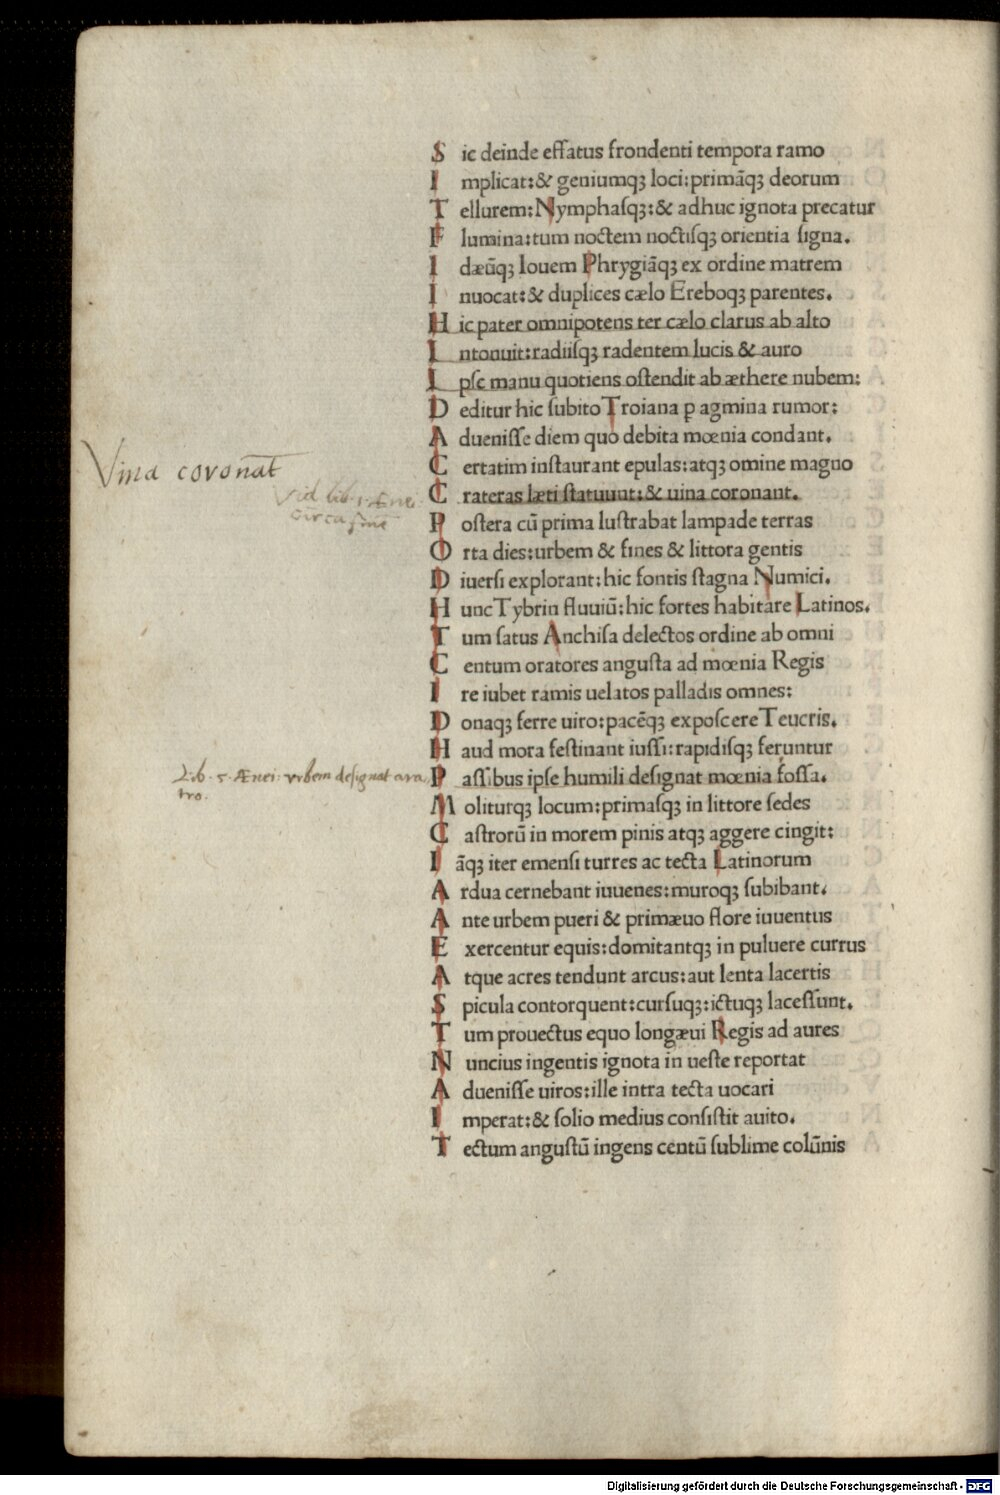 S ic deinde effatus frondenti tempora ramo
I mplicat:& geniumqꝫ loci:primãqꝫ deorum
T ellurem:Nymphaſqꝫ:& adhuc ignota precatur
F lumina:tum noctem noctiſqꝫ orientia ſigna.
I dæũqꝫ Iouem Phrygiãqꝫ ex ordine matrem
I nuocat:& duplices cælo Ereboqꝫ parentes.
H ic pater omnipotens ter cælo clarus ab alto
I ntonuit:radiiſqꝫ radentem lucis & auro
I pſe manu quotiens oſtendit ab æthere nubem:
D editur hic ſubito Troiana ꝑ agmina rumor:
A dueniſſe diem quo debita mœnia condant.
C ertatim inſtaurant epulas:atqꝫ omine magno
Vina coronãt
C rateras læti ſtatuunt:& uina coronant.
Vid lib. 1. Ænei.
circa finẽ
P oſtera cũ prima luſtrabat lampade terras
O rta dies:urbem & fines & littora gentis
D iuerſi explorant:hic fontis ſtagna Numici.
H unc Tybrin fluuiũ:hic fortes habitare Latinos.
T um ſatus Anchiſa delectos ordine ab omni
C entum oratores anguſta ad mœnia Regis
I re iubet ramis uelatos palladis omnes:
D onaqꝫ ferre uiro:pacẽqꝫ expoſcere Teucris.
H aud mora feſtinant iuſſi:rapidiſqꝫ feruntur
Lib. 5. Ænei. vrbem deſignat ara
tro.
P aſſibus ipſe humili deſignat mœnia foſſa.
M oliturqꝫ locum:primaſqꝫ in littore ſedes
C aſtrorũ in morem pinis atqꝫ aggere cingit:
I ãqꝫ iter emenſi turres ac tecta Latinorum
A rdua cernebant iuuenes:muroqꝫ ſubibant.
A nte urbem pueri & primæuo flore iuuentus
E xercentur equis:domitantqꝫ in puluere currus
A tque acres tendunt arcus:aut lenta lacertis
S picula contorquent:curſuqꝫ:ictuqꝫ laceſſunt.
T um prouectus equo longæui Regis ad aures
N uncius ingentis ignota in ueſte reportat
A dueniſſe uiros:ille intra tecta uocari
I mperat:& ſolio medius conſiſtit auito.
T ectum anguſtũ ingens centũ ſublime colũnis
Digitalisierung gefördert durch die Deutsche Forschungsgemeinschaft - DFG